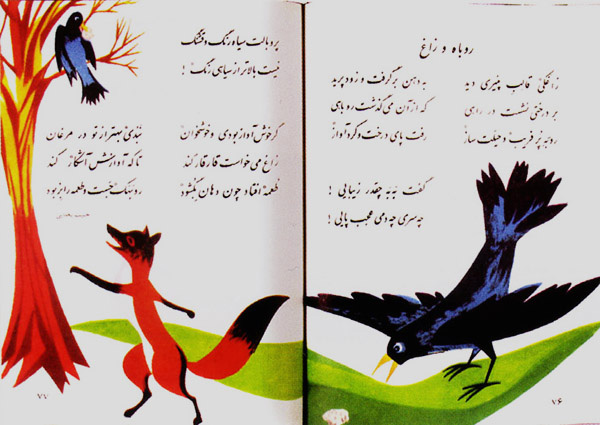 روباه و زاغ
زاغکی قالب پنیری دید به دهن برگرفت و زود پرید
بر درختی نشست در راهی که از آن می گذشت روباهی
روبه پر فریب و حیلت ساز رفت پای درخت و کرد آواز
گفت به به چقدر زیبایی !
چه سری چه دمی عجب پایی !
۷۶
پر و بالت سیاه رنگ و قشنگ
نیست بالاتر از سیاهی رنگ !
گر خوش آواز بودی و خوشخوان نبدی بهتر از تو در مرغان
زاغ می خواست قار قار کند تا که آوازش آشکار کند
طعمه افتاد چون دهان بگشود روبهک جست و طعمه را بربود
حبیب یغمایی
۷۷